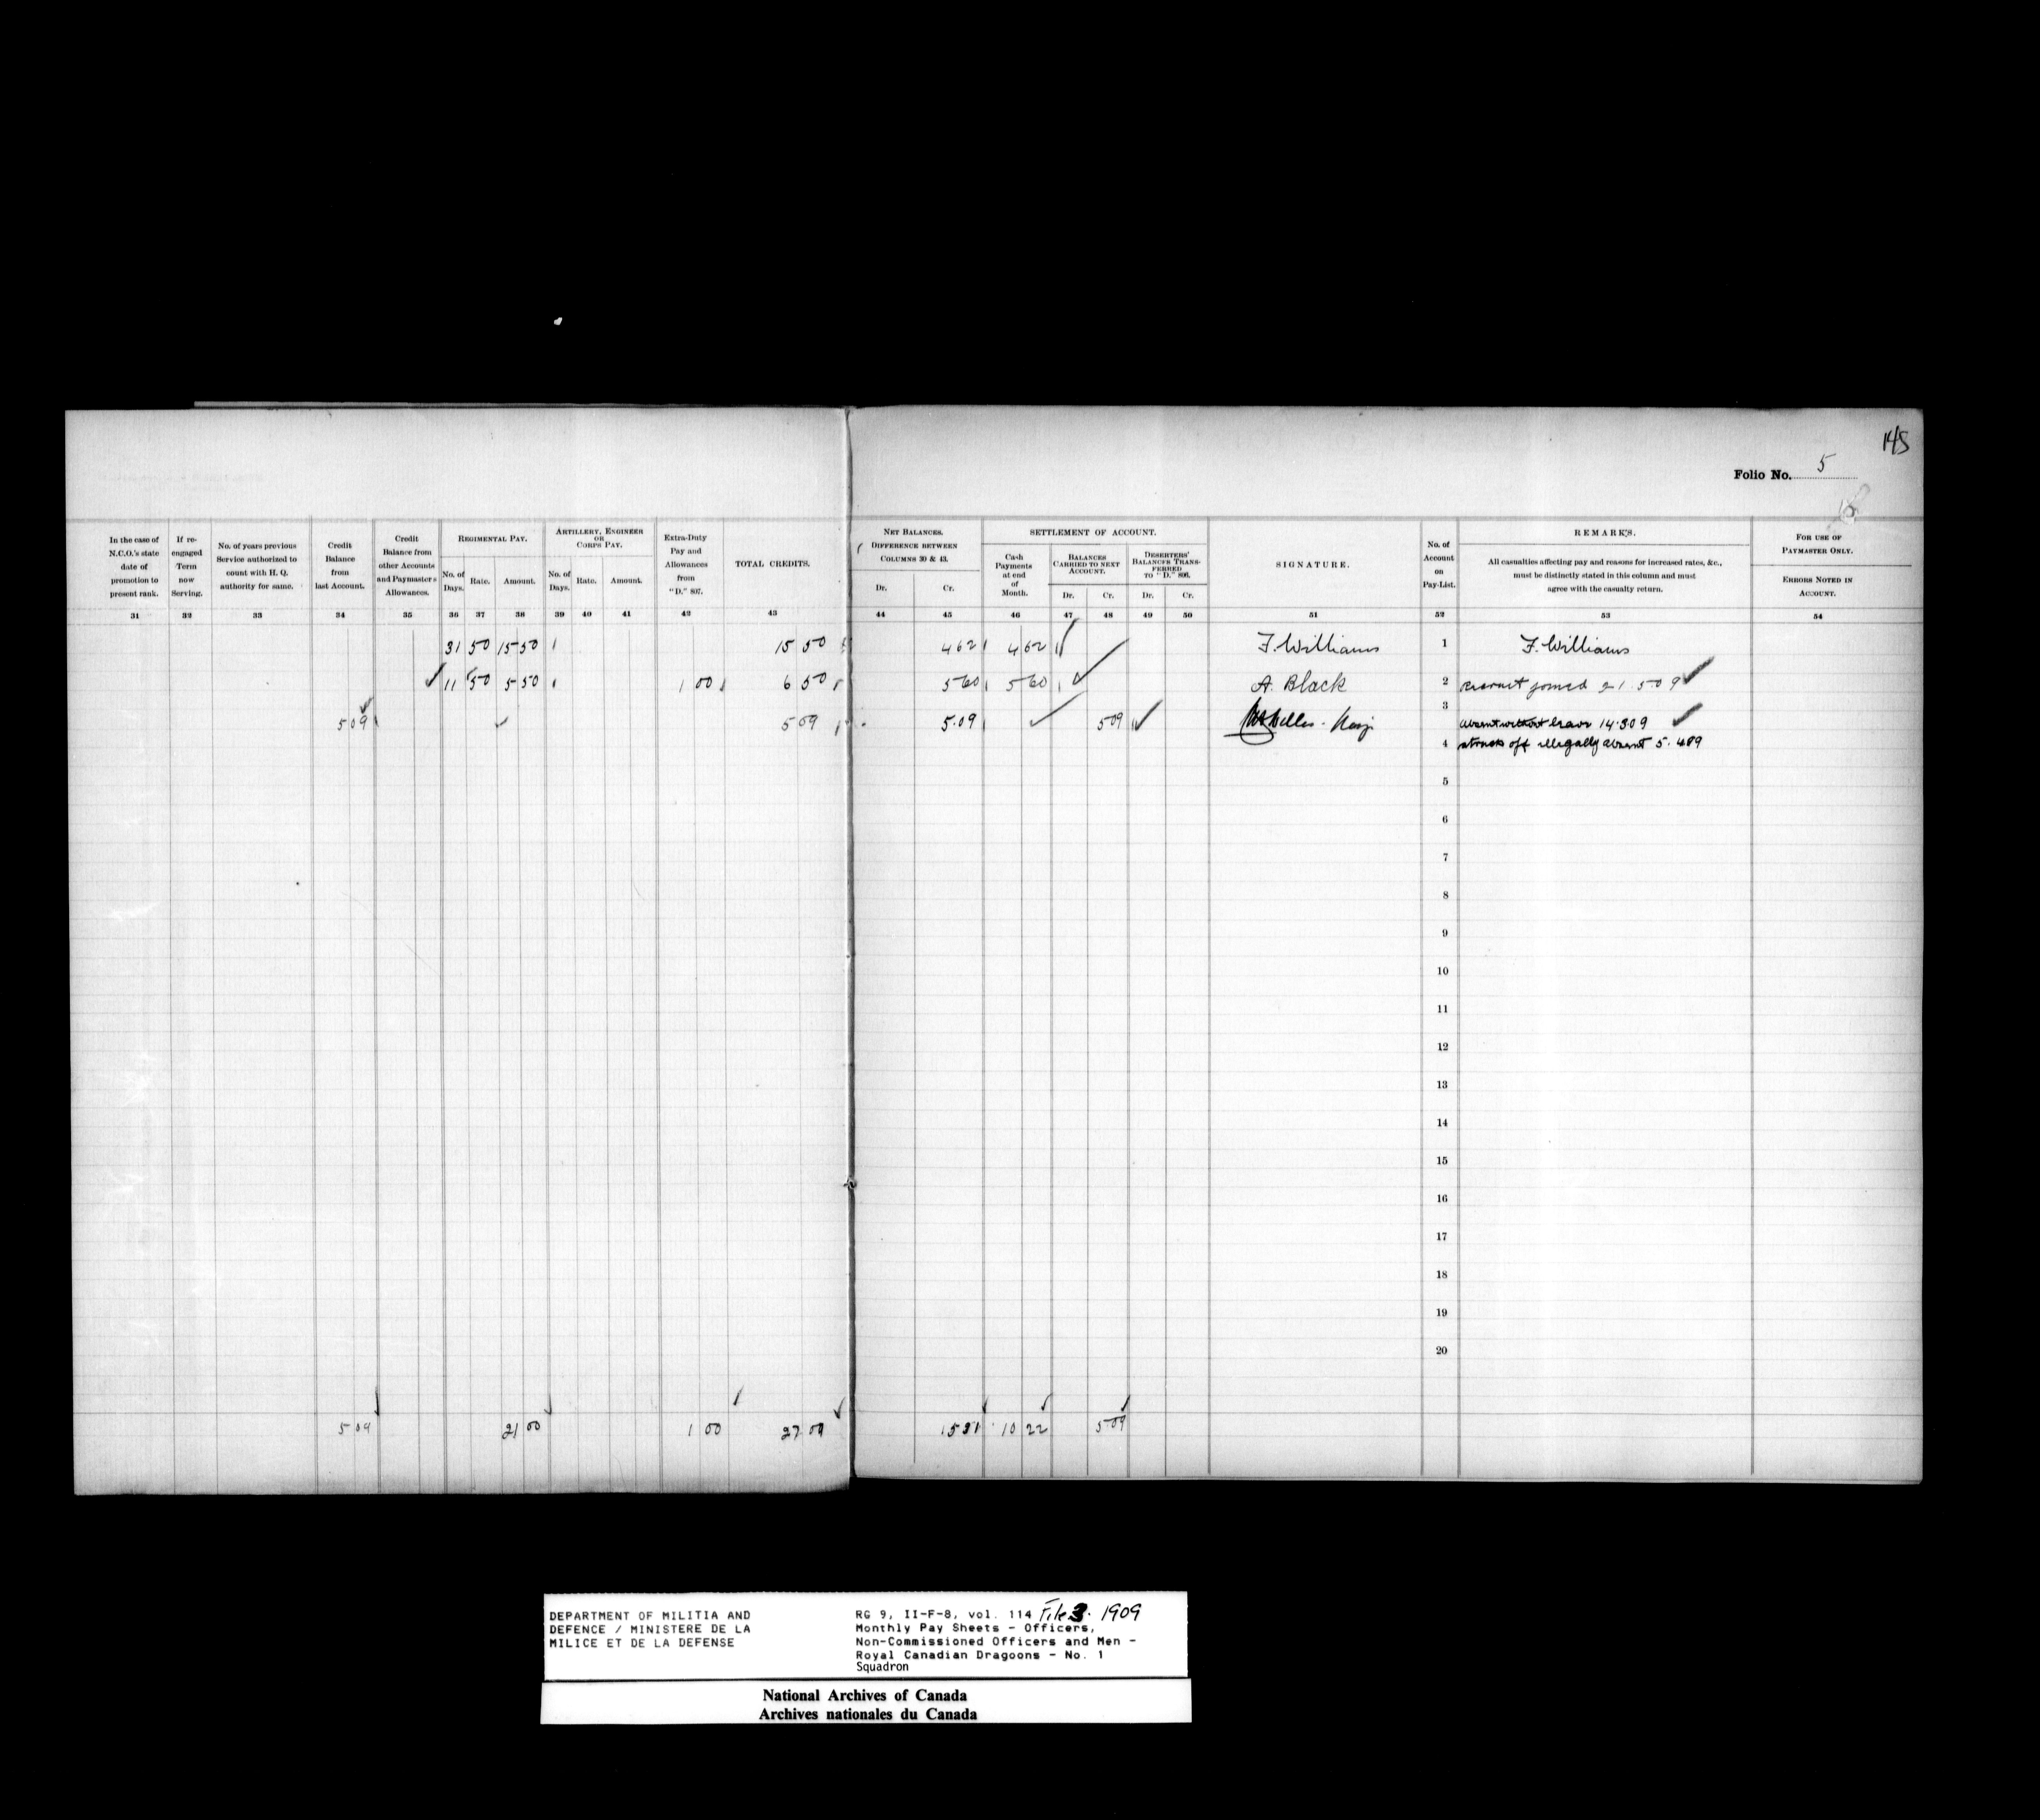 145
Folio No. 5
In the case of N.C.O.'s state date of promotion to present rank.
If re-engaged Term now Serving.
No. of years previous Service authorized to count with H. Q. authority for same.
Credit Balance from last Account.
Credit Balance from other Accounts and Paymasters Allowances.
REGIMENTAL PAY.
No. of Days. Rate. Amount.
ARTILLERY, ENGINEER OR CORPS PAY.
No. of Days. Rate. Amount.
Extra-Duty Pay and Allowances from "D." 807.
TOTAL CREDITS.
NET BALANCES.
DIFFERENCE BETWEEN COLUMNS 30 & 43.
Dr. Cr.
SETTLEMENT OF ACCOUNT.
Cash Payments at end of Month.
BALANCES CARRIED TO NEXT ACCOUNT.
Dr. Cr.
DESERTERS' BALANCES TRANSFERRED TO "D." 806.
Dr. Cr.
SIGNATURE.
No. of Account on Pay-List.
REMARKS.
All casualties affecting pay and reasons for increased rates, &c., must be distinctly stated in this column and must agree with the casualty return.
FOR USE OF PAYMASTER ONLY.
ERRORS NOTED IN ACCOUNT.
31 32 33 34 35 36 37 38 39 40 41 42 43 44 45 46 47 48 49 50 51 52 53 54
31 50 15 50 15 50 4 62 4 62 F. Williams 1 F. Williams
11 50 5 50 1 00 6 50 5 60 5 60 A. Black 2 Recruit joined 21.5 09
5 09 5 09 5.09 5 09 3 absent without leave 14.3.09
4 struck off illegally absent 5.4 09
5
6
7
8
9
10
11
12
13
14
15
16
17
18
19
20
5 09 21 00 1 00 27 09 15 31 10 22 5 09
DEPARTMENT OF MILITIA AND
DEFENCE / MINISTERE DE LA
MILICE ET DE LA DEFENSE
RG 9, II-F-8, vol. 114 File 3. 1909
Monthly Pay Sheets - Officers,
Non-Commissioned Officers and Men -
Royal Canadian Dragoons - No. 1
Squadron
National Archives of Canada
Archives nationales du Canada